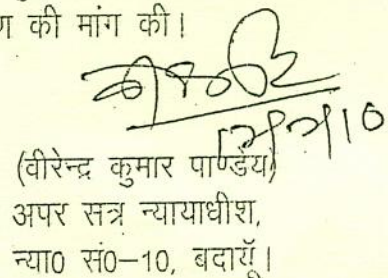 ण की मांग की।
(वीरेन्द्र कुमार पाण्डेय)
अपर सत्र न्यायाधीश,
न्या0 सं0–10, बदायूॅ।